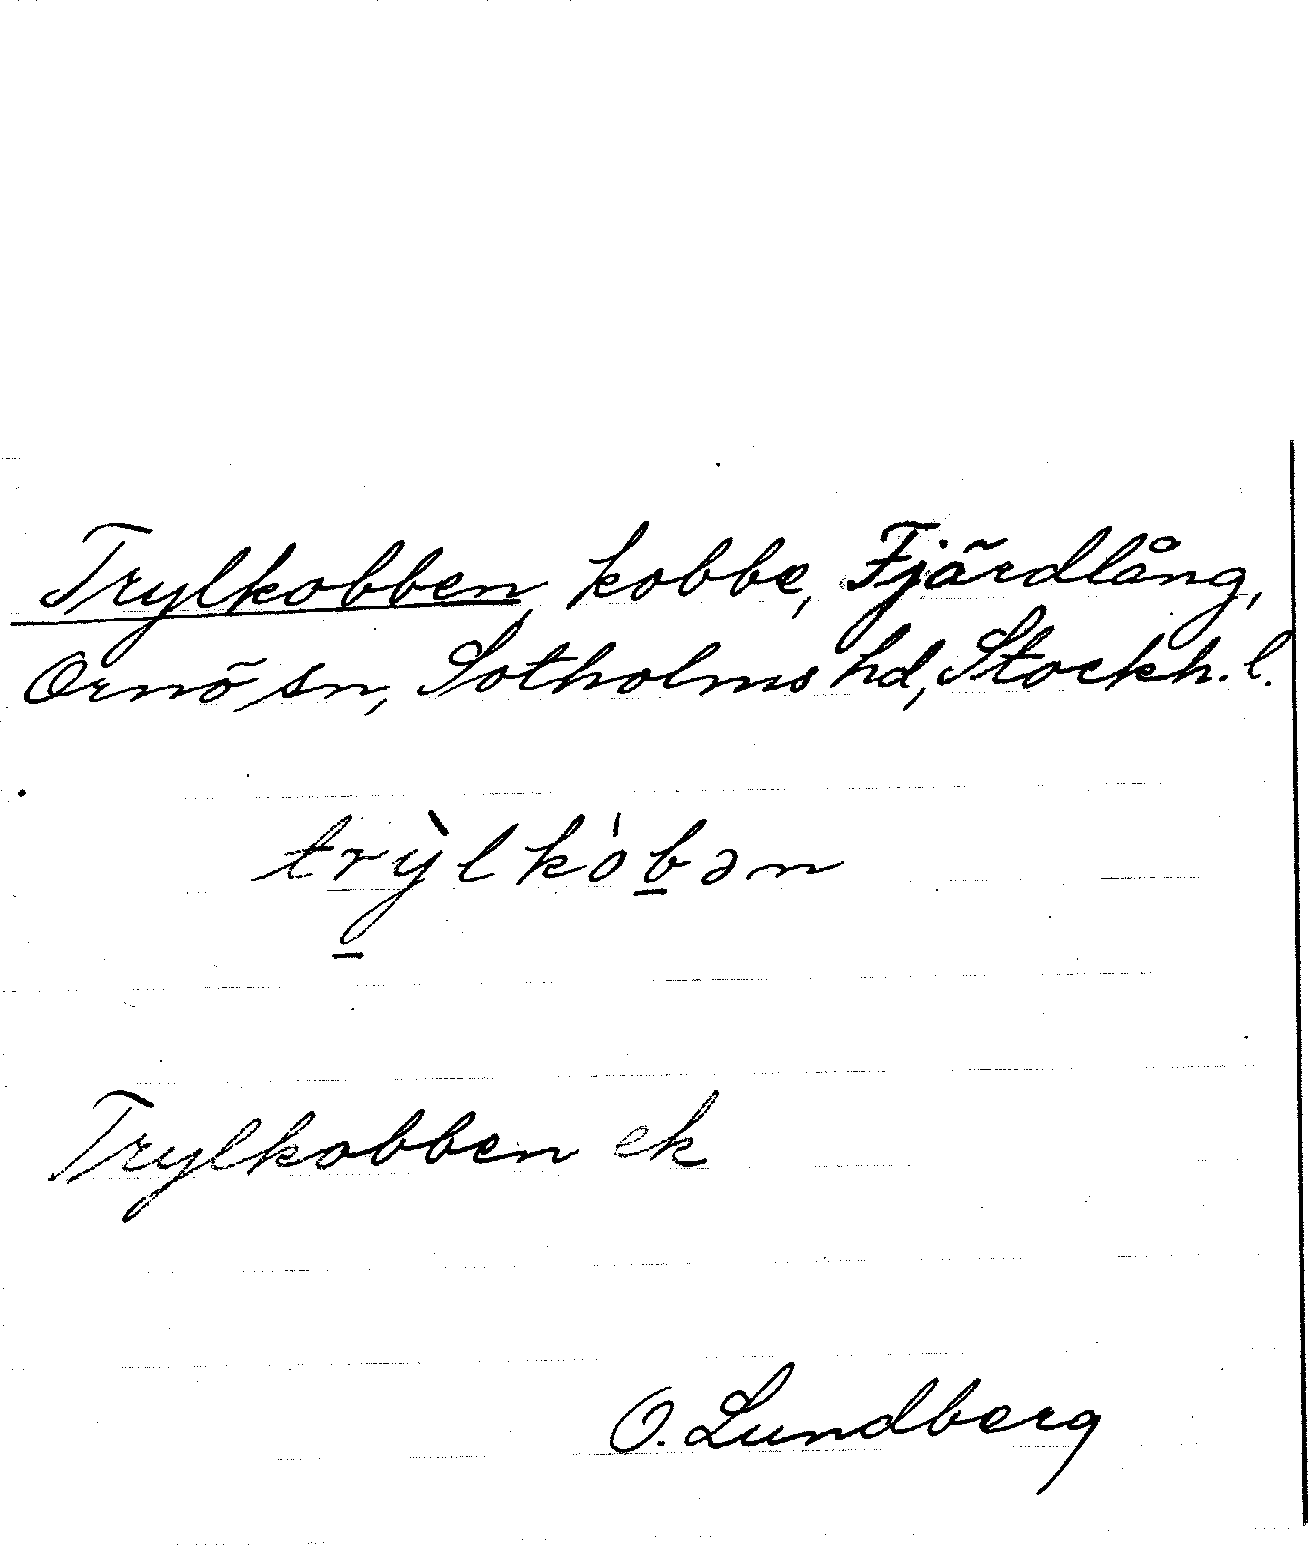 Trylkobben, kobbe, Fjärdlång,
Ornö sn, Sotholms hd, Stockh. l.
trỳ̠lkòb̠ən
Trylkobben ek
O. Lundberg